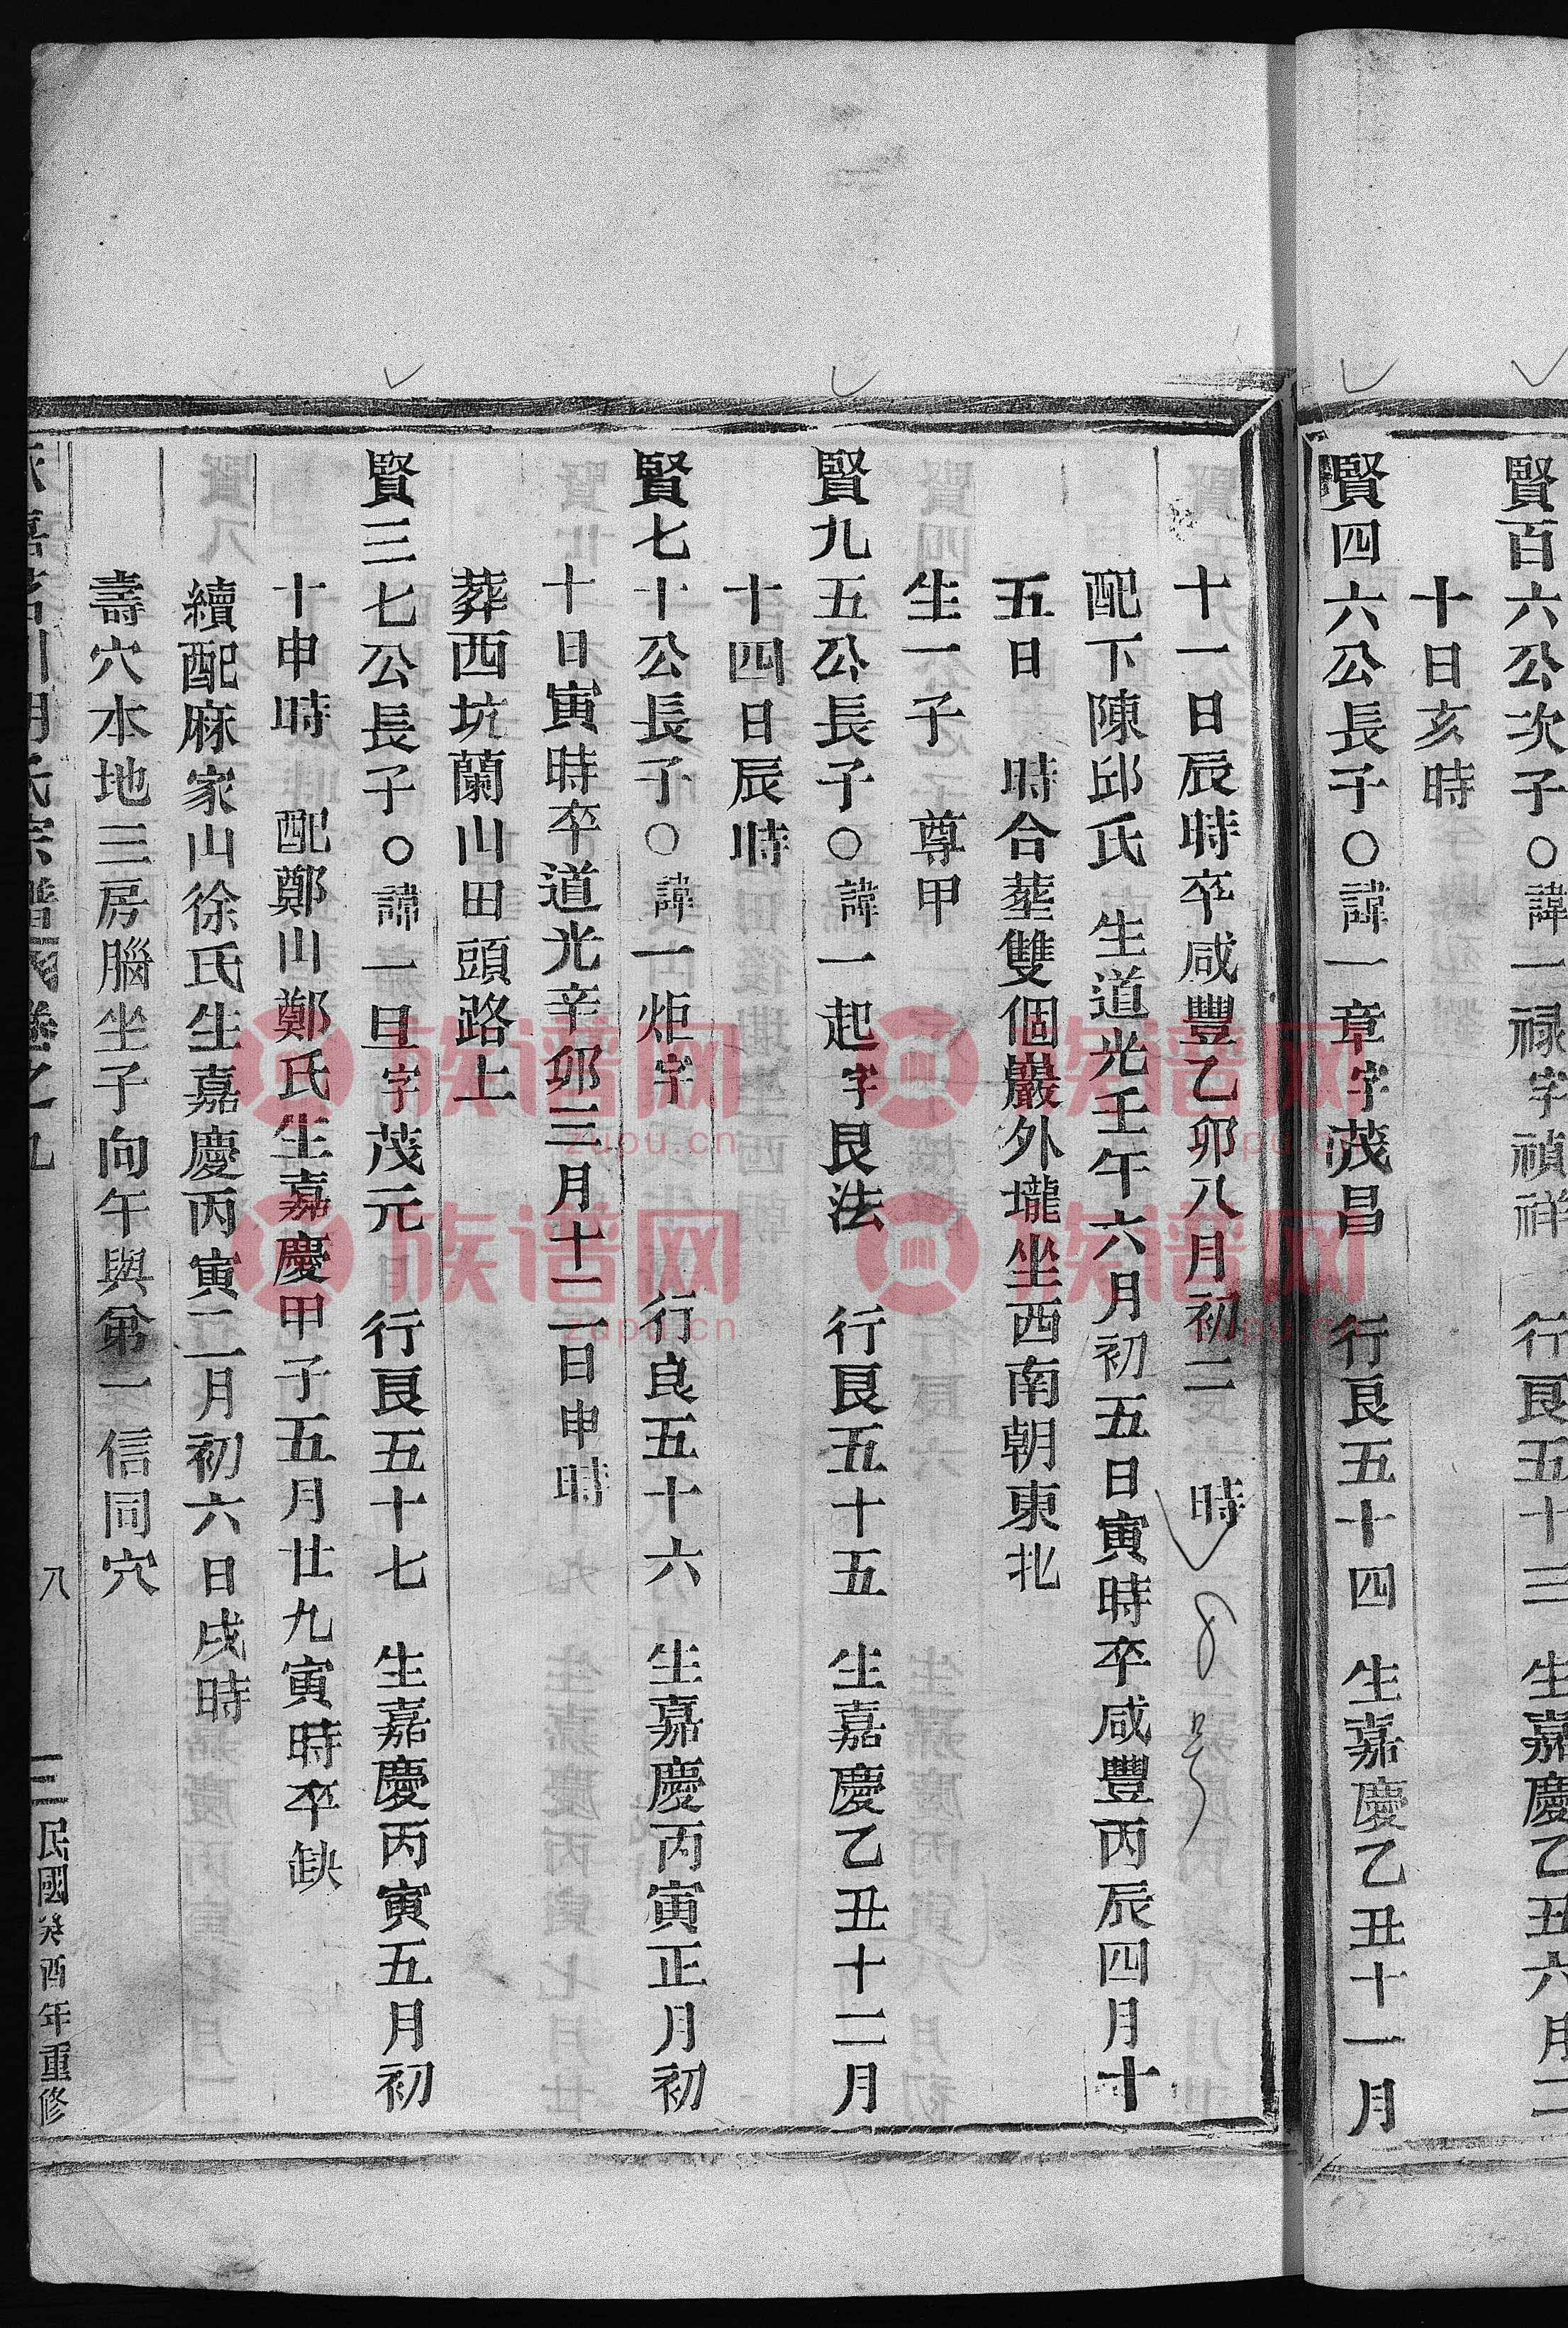 賢百六公次子○諱一禄字禎祥 行艮五十三 生嘉慶乙丑六月二
十日亥時
賢四六公長子○諱一章字茂昌 行艮五十四 生嘉慶乙丑十一月
十一日辰時卒咸豐乙卯八月初二 時
配下陳邱氏 生道光壬午六月初五日寅時卒咸豐丙辰四月十
五日 時合塟雙個巖外壠坐西南朝東北
生一子 尊甲
賢九五公長子○諱一起字艮法 行艮五十五 生嘉慶乙丑十二月
十四日辰時
賢七十公長子○諱一炬字 行良五十六 生嘉慶丙寅正月初
十日寅時卒道光辛卯三月十二日申時
葬西坑蘭山田頭路上
賢三七公長子○諱一旦字茂元 行艮五十七 生嘉慶丙寅五月初
十申時 配鄭山鄭氏生嘉慶甲子五月廿九寅時卒缺
續配麻家山徐氏生嘉慶丙寅二月初六日戌時
壽穴本地三房腦坐子向午與弟一信同穴
八 民國癸酉年重修
族谱网
zupu.cn
族谱网
zupu.cn
族谱网
zupu.cn
族谱网
zupu.cn